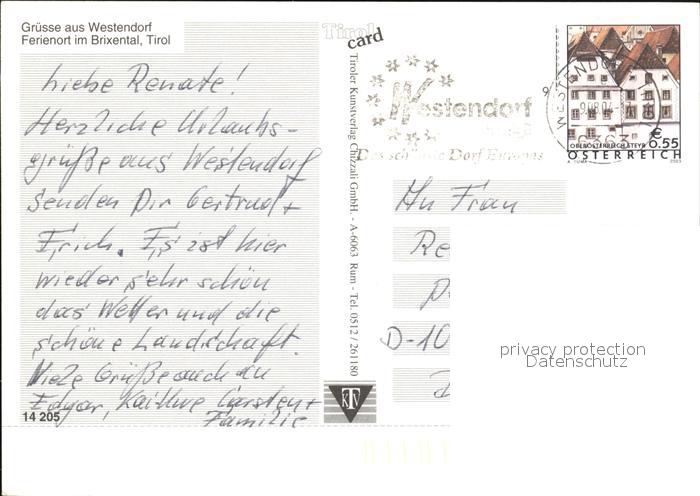 Grüsse aus Westendorf
Ferienort im Brixental, Tirol
Liebe Renate!
Herzliche Urlaubs-
grüße aus Westendorf
senden Dir Gertrud +
Erich. Es ist hier
wieder sehr schön
das Wetter und die
schöne Landschaft.
Viele Grüße auch an
Edgar, Carsten +
Familie
14 205
Tirol
card
Tiroler Kunstverlag Chizzali GmbH. - A-6063 Rum - Tel. 0512 / 261180
KTV
Westendorf
Das schönste Dorf Europas
WESTENDORF
6363
OBERÖSTERREICH STEYR
€ 0.55
ÖSTERREICH
2003
An Frau
Re
D-10
privacy protection
Datenschutz